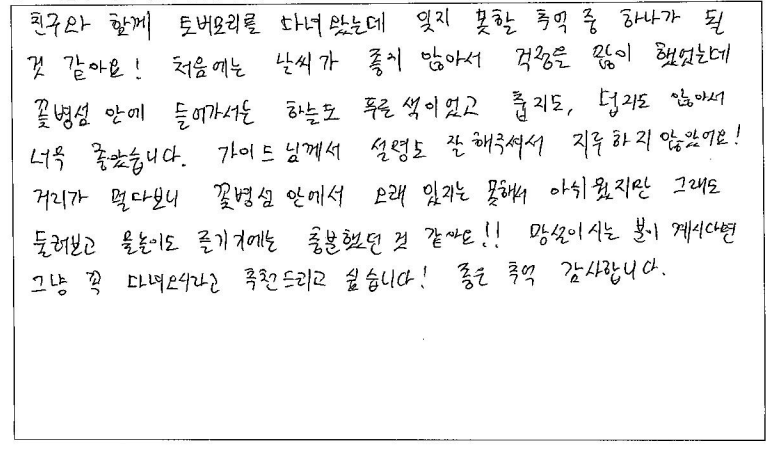 친구와 함께 토버모리를 다녀 왔는데 잊지 못할 추억 중 하나가 될
것 같아요! 처음에는 날씨가 좋지 않아서 걱정을 많이 했었는데
꽃병섬 안에 들어가서는 하늘도 푸른 색이었고 춥지도, 덥지도 않아서
너무 좋았습니다. 가이드님께서 설명도 잘 해주셔서 지루하지 않았어요!
거리가 멀다보니 꽃병섬 안에서 오래 있지는 못해서 아쉬웠지만 그래도
둘러보고 물놀이도 즐기기에는 충분했던 것 같아요!! 망설이시는 분이 계시다면
그냥 꼭 다녀오시라고 추천드리고 싶습니다! 좋은 추억 감사합니다.